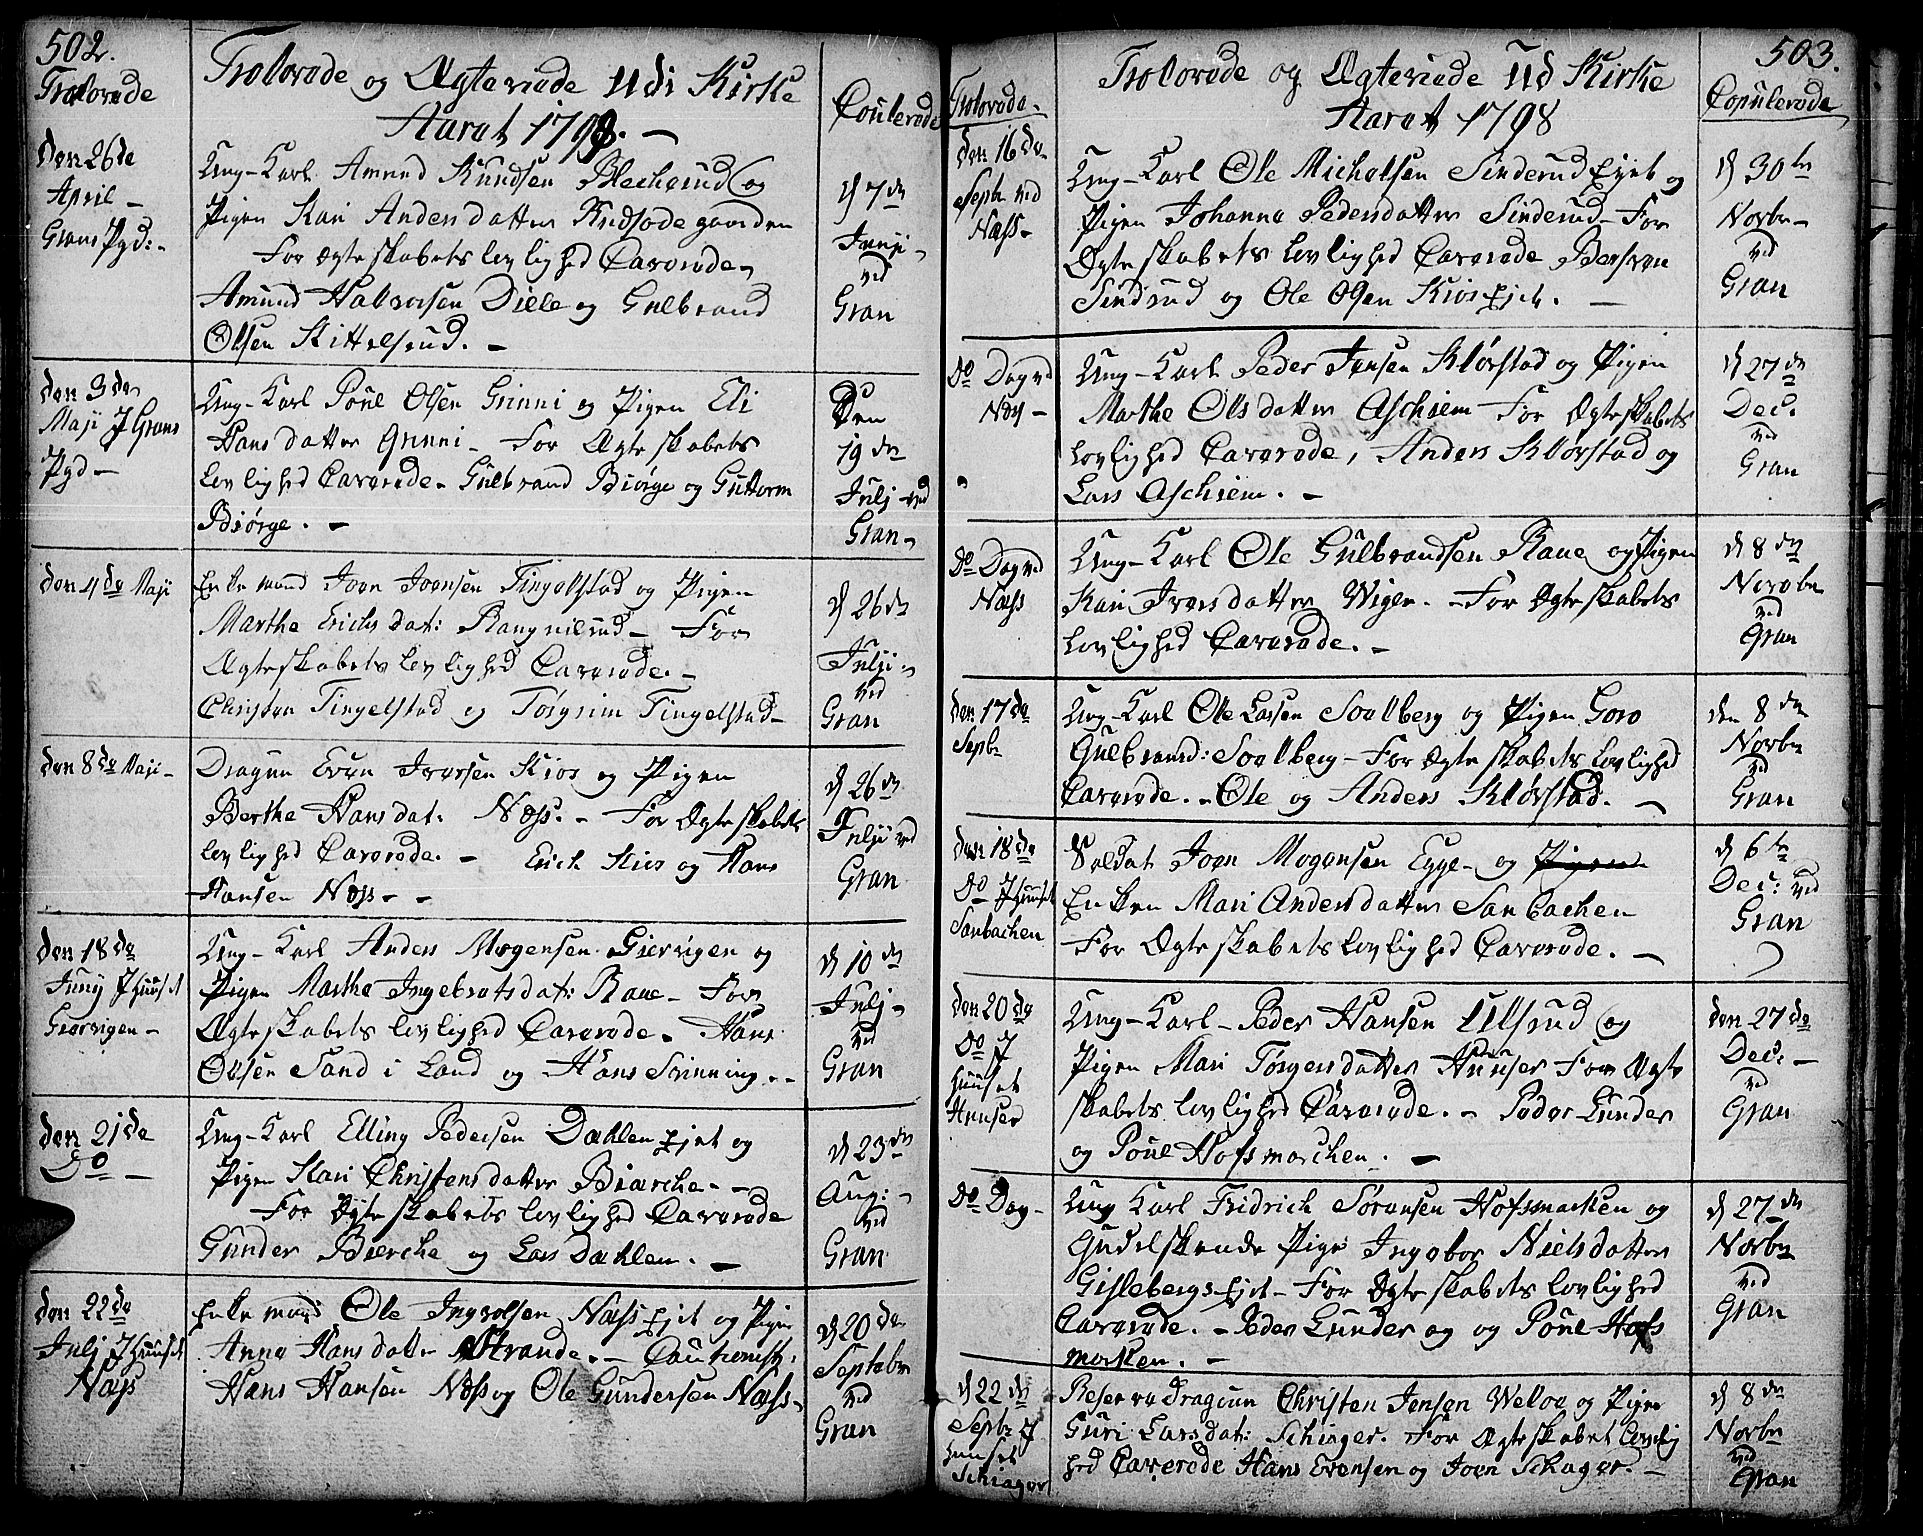 502.
Trolovede
Trolovede og Ægteviede Udi Kirke
Aaret 1798. -
Couleerede
den 26de
April -
Grans Pgd: -
Ung-Karl Amund Knudsen Blechsrud og
Pigen Kari Anders datter
For Ægteskabets lovlighed Caverede
Amund Halvorsen Diele og Gulbrand
Olsen Kittelsrud. -
d 7de
Junji -
ved
Gran
den 3de
Maji J Grans
Pgd -
Ung-Karl Poul Olsen Grinni og Pigen Eli
Hans datter Grinni - For Ægteskabets
lovlighed Caverede - Gulbrand Biørge og Guttorm
Biørge. -
Den
19de
Julj ved
Gran -
den 4de Maji
Enkemand Joen Joensen Tingelstad og Pigen
Marthe Erichs dat: Rangnilrud - For
Ægteskabets lovlighed Caverede. -
Christen Tingelstad og Torgrim Tingelstad -
d 26de
Julji -
ved
Gran
den 8de Maji -
Dragun Even Iversen Kios og Pigen
Berthe Hans dat: Næss. - For Ægteskabets
lovlighed Caverede. - Erich Kios og Hans
Hansen Næss - -
d 26de
Julji ved
Gran
den 18de
Junij J Huuset
Giervigen -
Ung-Karl Anders Mogensen Giervigen og
Pigen Marthe Ingebrets dat: Raue - For
Ægteskabets lovlighed Caverede. Hans
Olsen Sand i Land og Hans Svinning. -
d 10de
Julj -
ved
Gran
den 21de
Do -
Ung-Karl Elling Pedersen Dæhlen Ejet og
Pigen Kari Christens datter Biærche. -
For Ægteskabets lovlighed Caverede
Gunder Bierche og Lars Dæhlen. -
d 23de
Aug: -
ved
Gran
den 22de
Julj J Huuset
Næss
Enkemand Ole Ingvolsen Næss Ejet og Pigen
Anne Hans datter Strande. - Cautionist:
Hans Hansen Næss og Ole Gundersen Næss -
d 20de
Septebr
ved
Gran
503.
Trolovede -
Trolovede og Ægteviede Ud Kirke
Aaret 1798
Copulerede
den 16de
Septbr ved
Næss -
Ung-Karl Ole Michelsen Sinderud Ejet og
Pigen Johanne Peders datter Sinderud - For
Ægteskabets lovlighed Caverede
Sindrud og Ole Olsen Kios Ejet. -
d 30te
Novbr -
ved
Gran
Do Dag ved
Næss -
Ung-Karl Peder Jensen Klørstad og Pigen
Marthe Ols datter Aschiem For Ægteskabets
lovlighed Caverede, Anders Klørstad og
Lars Aschiem. -
d 27de
Dec:
ved
Gran
Do Dag ved
Næss
Ung-Karl Ole Gulbrandsen Raue og Pigen
Kari Ivers datter Wigen. - For Ægteskabets
lovlighed Caverede. -
d 8de
Novobr
ved
Gran
den 17de
Septbr
Ung-Karl Ole Larsen Soelberg og Pigen Goro
Gulbransd: Soelberg - For Ægteskabets lovlighed
Caverede. - Ole og Anders Klørstad. -
den 8de
Novbr
ved
Gran
den 18de
Do J Huuset
Sanbachen
Soldat Joen Mogensen Egge - og Pigen
Enken Mari Anders datter Sanbachen
For Ægteskabets lovlighed Caverede. -
d 6te
Dec: ved
Gran
den 20de
Do J
Huuset
Hunser
Ung-Karl - Peder Hansen Ulsrud og
Pigen Mari Torgers datter Hunser For Ægte
skabets lovlighed Caverede. - Peder Lunder
og Poul Hofsmarchen. -
den 27de
Dec: -
ved
Gran
Do Dag -
Ung Karl Fridrich Sørensen Hofsmarken og
Gudelskende Pige Ingebor Niels datter
Gislebergs Ejet - For Ægteskabets lovlighed
Caverede. - Peder Lunder og og Poul Hofs
marken. -
d 27de
Novbr
ved
Gran
d 22de
Septbr J
Huuset
Schiager
Reserve Dragun Christen Jensen Weloe og Pigen
Guri Lars dat: Schiager. For Ægteskabet lovlig
hed Caverede Hans Evensen og Joen Schager. -
d 8de
Novbr
ved
Gran